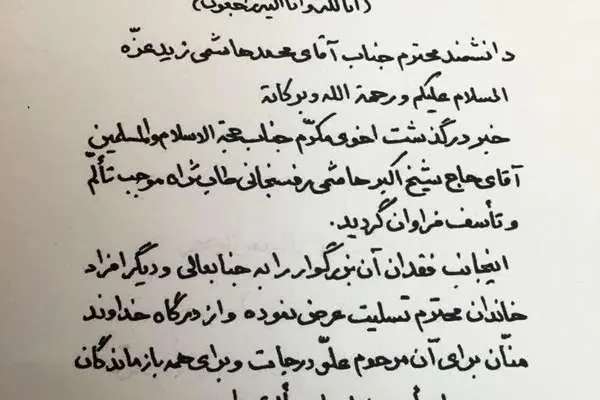 (انا لله و انا الیه راجعون)
دانشمند محترم جناب آقای محمد هاشمی زید عزّه
السلام علیکم و رحمة الله و برکاتة
خبر درگذشت اخوی مکرّم جناب حجة الاسلام والمسلمین
آقای حاج شیخ اکبر هاشمی رفسنجانی طاب ثراه موجب تألّم
و تأسف فراوان گردید.
اینجانب فقدان آن بزرگوار را به جنابعالی و دیگر افراد
خاندان محترم تسلیت عرض نموده و از درگاه خداوند
منّان برای آن مرحوم علوّ درجات و برای همه بازماندگان